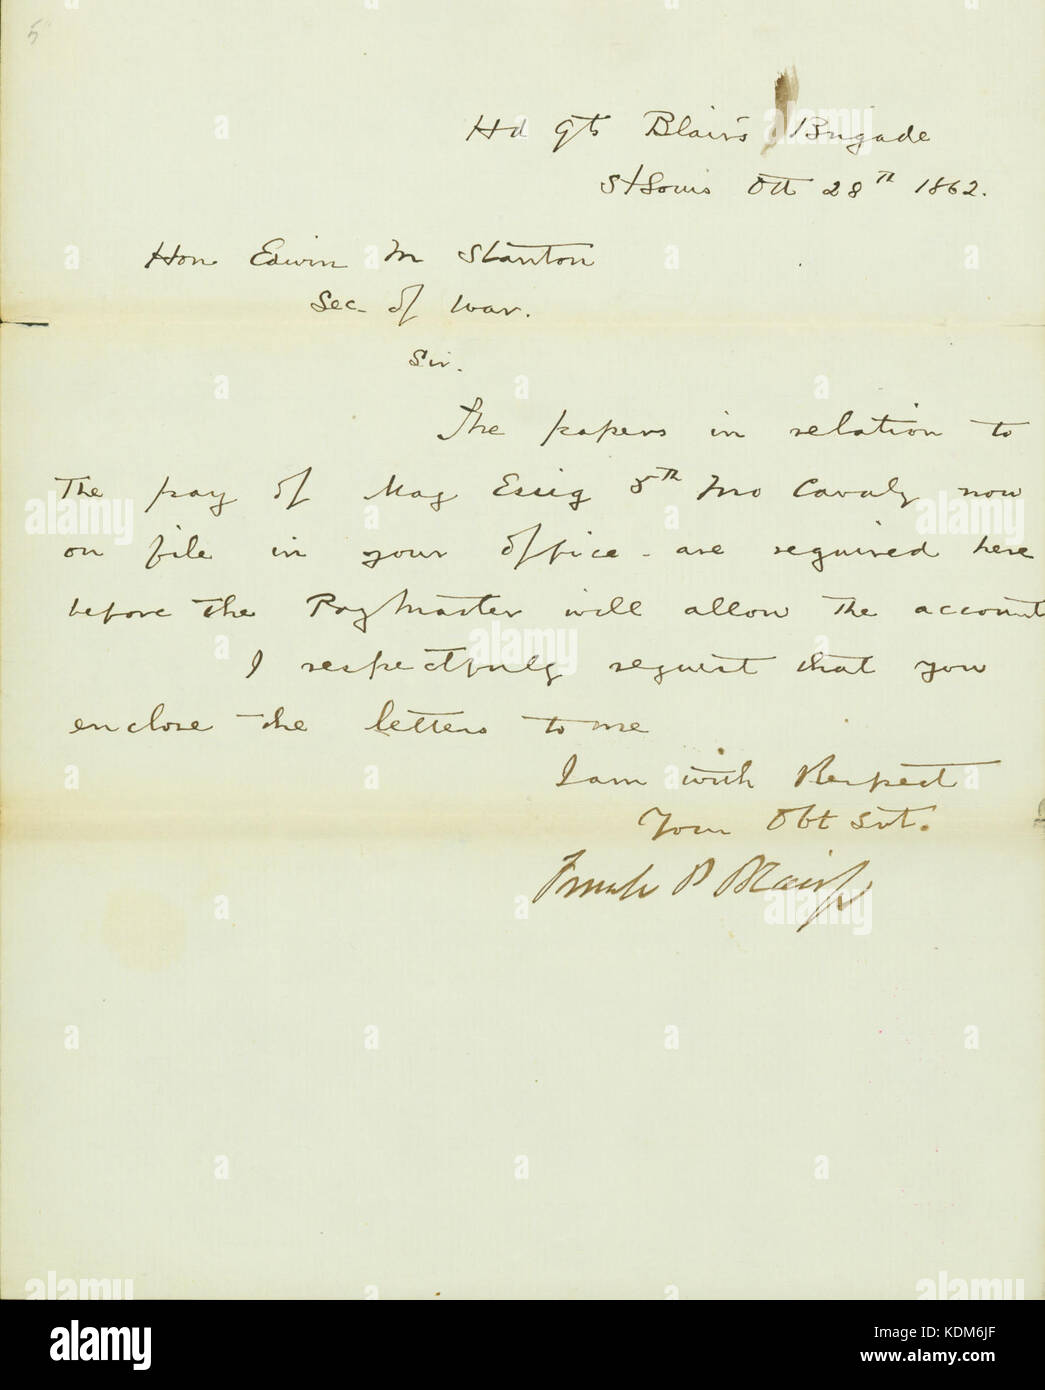 5
Hd Qts Blair's Brigade
St Louis Oct 28th 1862.
Hon Edwin M Stanton
Sec. of War.
Sir.
The papers in relation to
The pay of Maj Essig 5th Mo Cavaly now
on file in your office - are required here
before the Paymaster will allow the account
I respectfuly request that you
enclose the letters to me
I am with Respect
Your Obt Svt.
Frank P Blair Jr
alamy stock photo
Image ID: KDM6JF
www.alamy.com